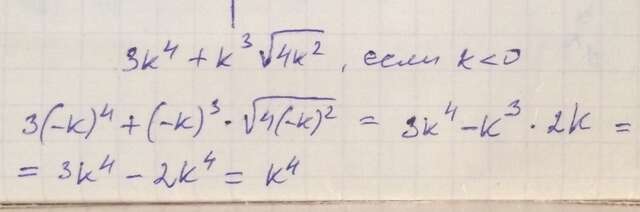 3k⁴ + k³√(4k²), если k<0
3(-k)⁴ + (-k)³ · √(4(-k)²) = 3k⁴ - k³ · 2k =
= 3k⁴ - 2k⁴ = k⁴